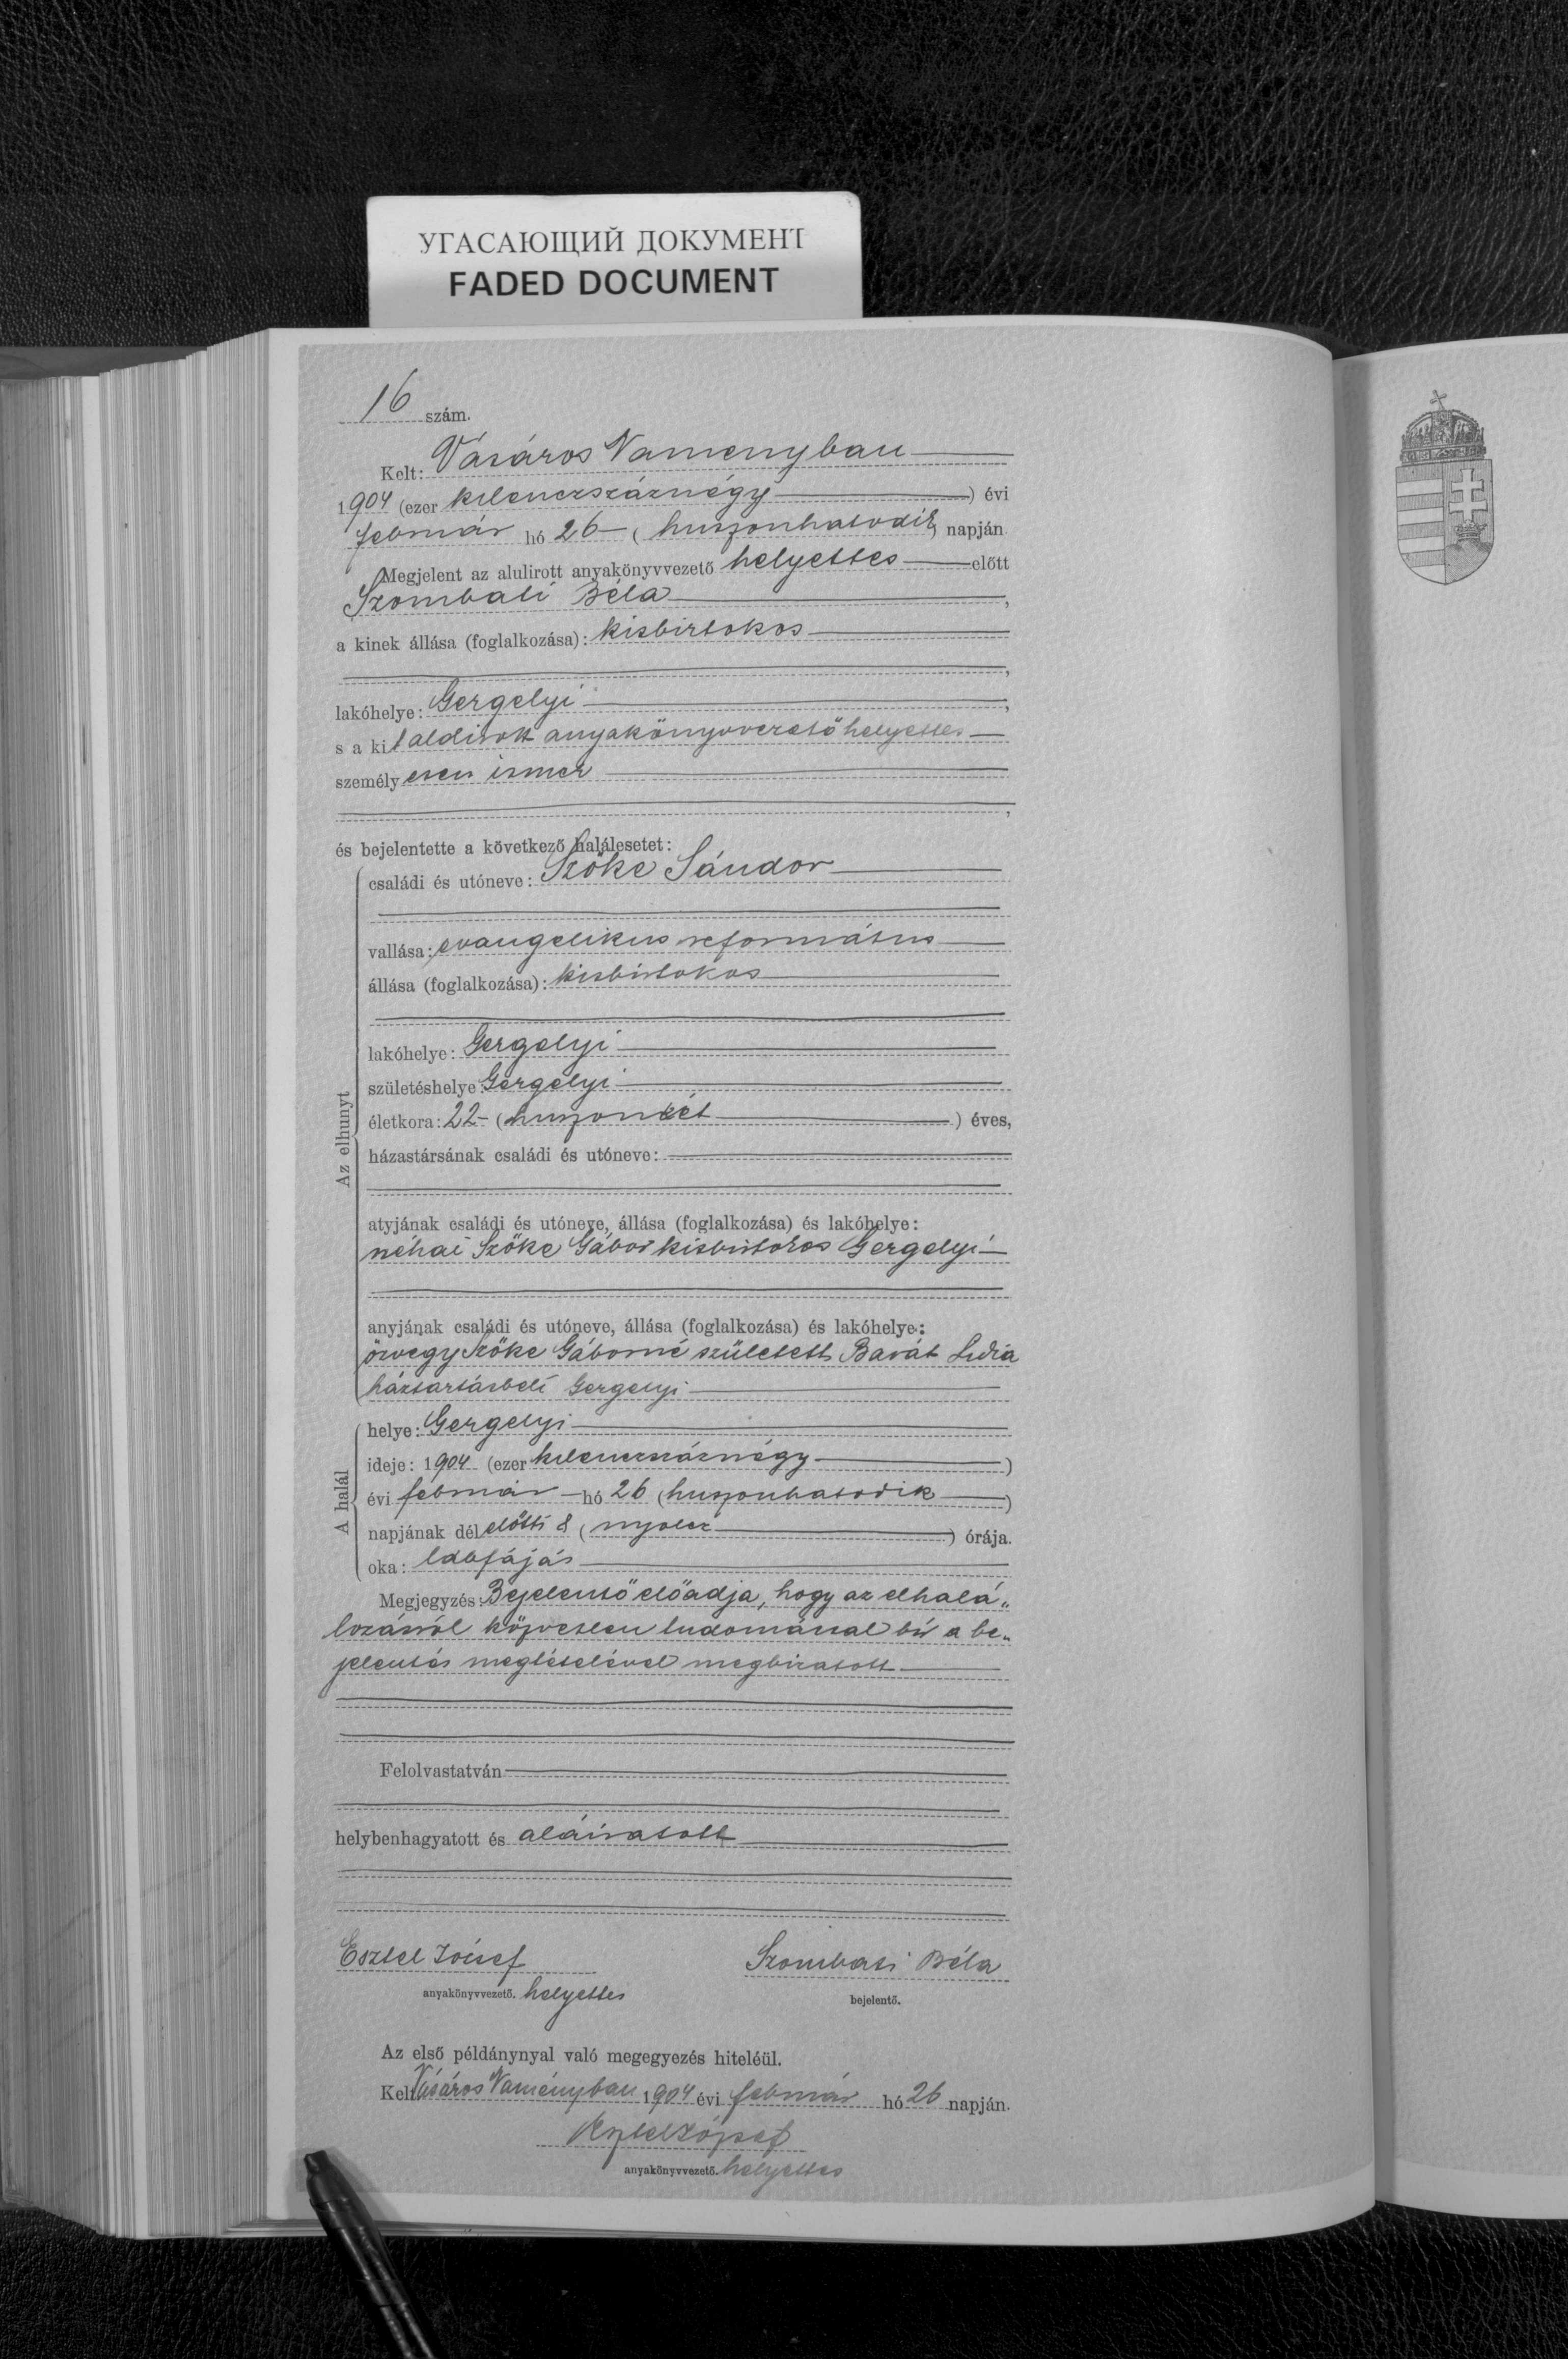 УГАСАЮЩИЙ ДОКУМЕНТ
FADED DOCUMENT
16 szám.
Kelt: Vásáros Naményban
1904 (ezer kilenczszáznégy) évi
február hó 26 (huszonhatodik) napján
Megjelent az alulirott anyakönyvvezető helyettes előtt
Szombati Béla,
a kinek állása (foglalkozása): kisbirtokos
,
lakóhelye: Gergelyi,
s a kit aldirott anyakönyvvezető helyettes
személyesen ismer
,
és bejelentette a következő halálesetet:
Az elhunyt
családi és utóneve: Szőke Sándor
vallása: evangelikus református
állása (foglalkozása): kisbirtokos
lakóhelye: Gergelyi
születéshelye: Gergelyi
életkora: 22 (huszonkét) éves,
házastársának családi és utóneve:
atyjának családi és utóneve, állása (foglalkozása) és lakóhelye:
néhai Szőke Gábor kisbirtokos Gergelyi
anyjának családi és utóneve, állása (foglalkozása) és lakóhelye:
özvegy Szőke Gáborné született Barát Lidia
háztartásbeli Gergelyi
A halál
helye: Gergelyi
ideje: 1904 (ezer kilenczszáznégy)
évi február hó 26 (huszonhatodik)
napjának délelőtti 8 (nyolcz) órája.
oka: lábfájás
Megjegyzés: Bejelentő előadja, hogy az elhalá„
lozásról közvetlen tudomással bír a be„
jelentés megtételével megbizatott
Felolvastatván
helybenhagyatott és aláiratott
Esztel József
Szombati Béla
anyakönyvvezető. helyettes
bejelentő.
Az első példánynyal való megegyezés hiteléül.
Kelt Vásáros Naményban 1904 évi február hó 26 napján.
Esztel József
anyakönyvvezető. helyettes